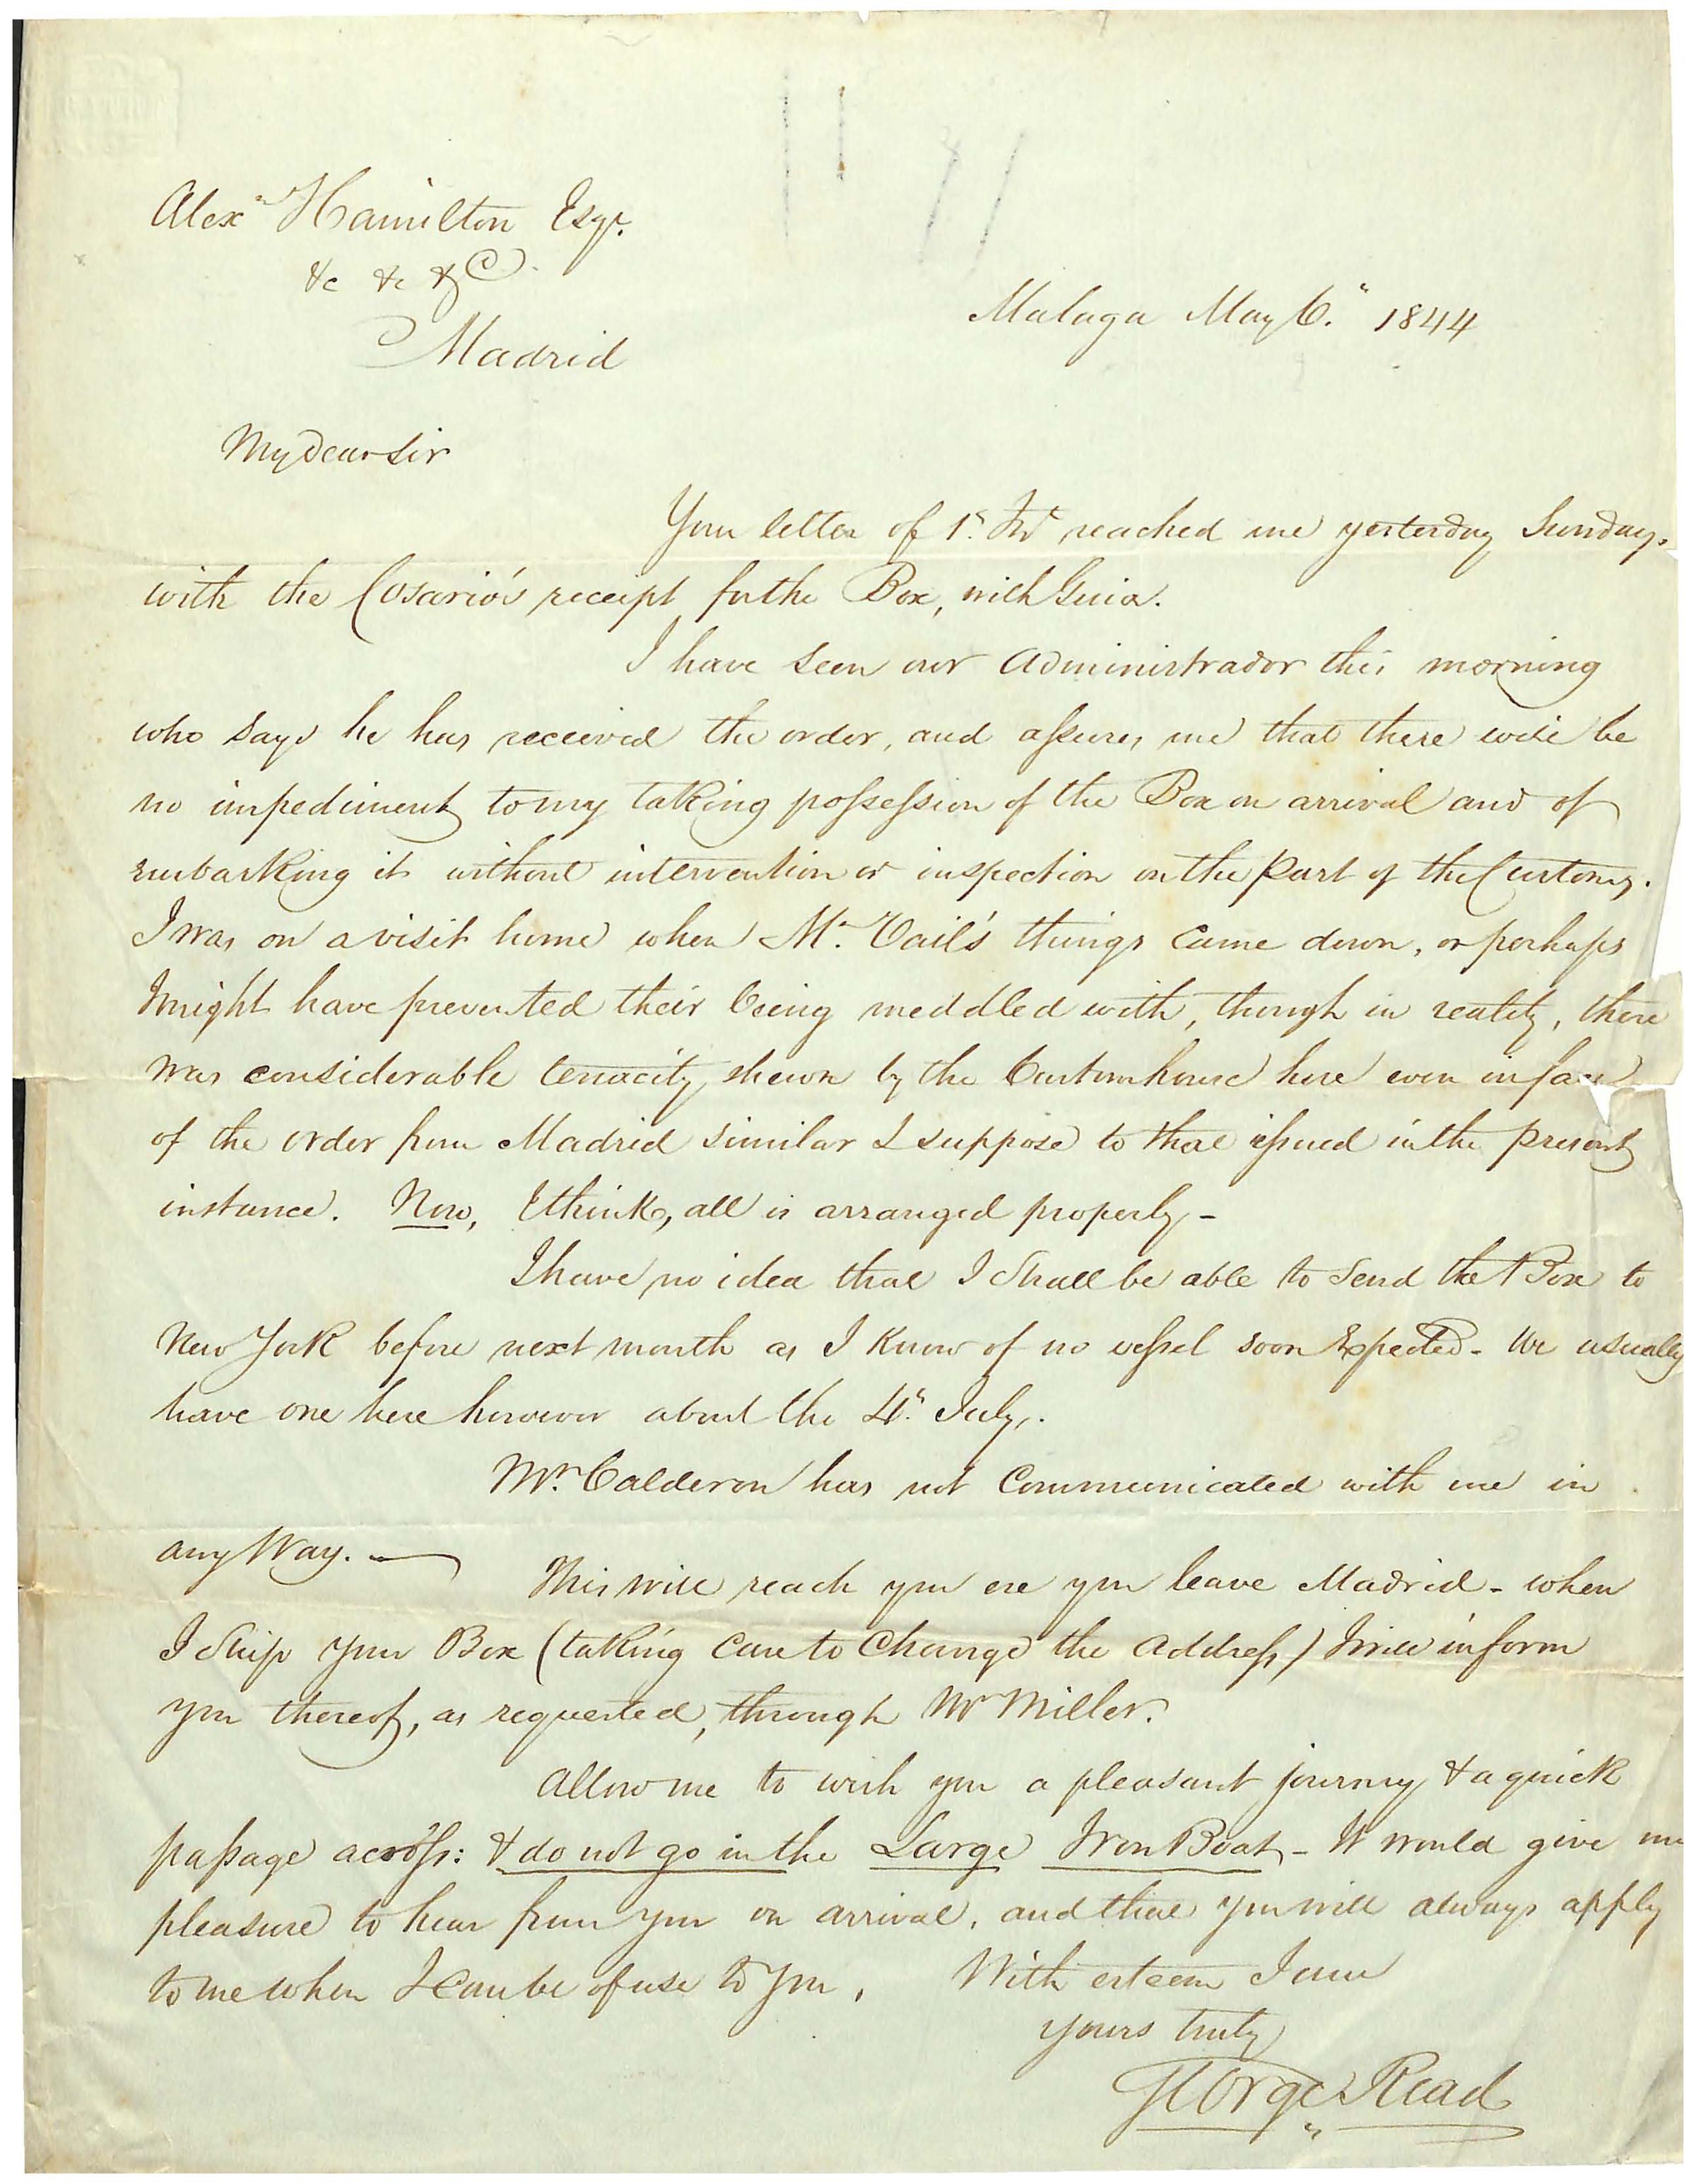 Alexr Hamilton Esqr.
&c &c &c
Madrid
Malaga May 6." 1844
My Dear Sir
Your letter of 1st Inst reached me yesterday Sunday.
with the Cosario's receipt for the Box, with Guia.
I have seen our Administrador this morning
who says he has received the order, and assures me that there will be
no impediment to my taking possession of the Box on arrival and of
embarking it without intervention or inspection on the part of the Customs.
I was on a visit home when Mr. Vail's things came down, or perhaps
I might have prevented their being meddled with, though in reality, there
was considerable tenacity shewn by the Customhouse here even in face
of the order from Madrid similar I suppose to that issued in the present
instance. Now, I think, all is arranged properly -
I have no idea that I shall be able to send the Box to
New York before next month as I know of no vessel soon expected - We usually
have one here however about the 4th July.
Mr. Calderon has not Communicated with me in
any Way. —
This will reach you ere you leave Madrid - when
I ship your Box (taking care to change the address) I will inform
you thereof, as requested, through Mr Miller.
Allow me to wish you a pleasant journey & a quick
passage across: & do not go in the Large Iron Boat - It would give me
pleasure to hear from you on arrival, and that you will always apply
to me when I can be of use to you. With esteem I am
yours truly
George Read